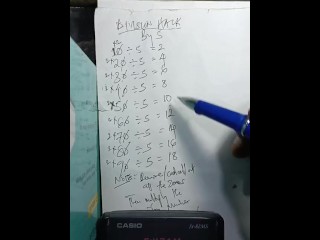 DIVISION HACK
By 5
10 ÷ 5 = 2
2×20 ÷ 5 = 4
2×30 ÷ 5 = 6
2×40 ÷ 5 = 8
2×50 ÷ 5 = 10
2×60 ÷ 5 = 12
2×70 ÷ 5 = 14
2×80 ÷ 5 = 16
2×90 ÷ 5 = 18
Note: Remove/cancel
off the zeros
Then multiply the
number
CASIO